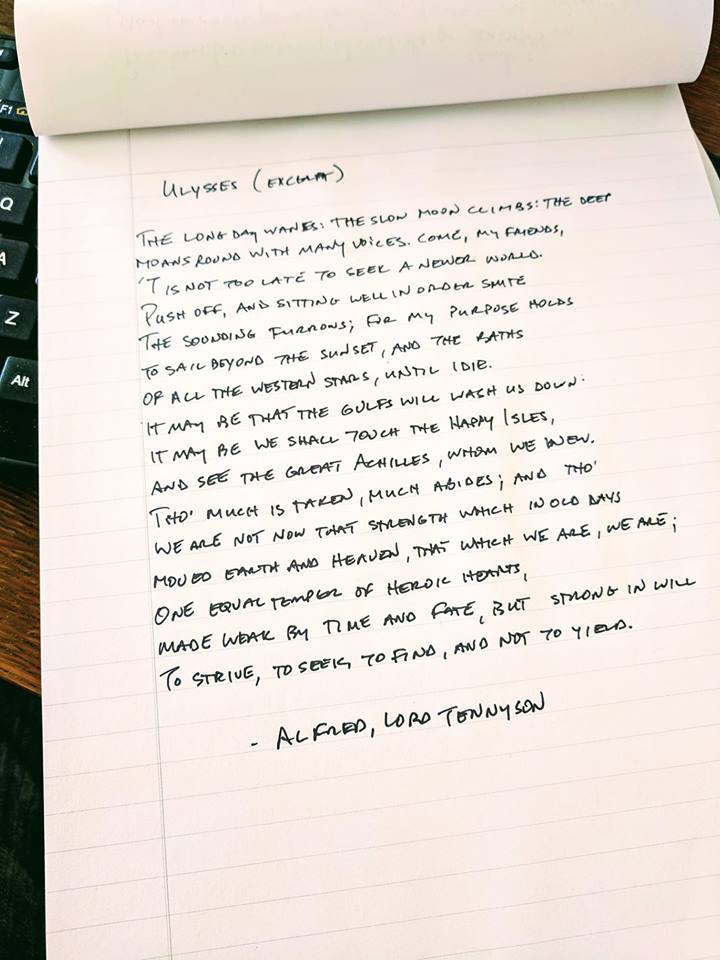 F1
Q
A
Z
Alt
ULYSSES (EXCERPT)
THE LONG DAY WANES: THE SLOW MOON CLIMBS: THE DEEP
MOANS ROUND WITH MANY VOICES. COME, MY FRIENDS,
'T IS NOT TOO LATE TO SEEK A NEWER WORLD.
PUSH OFF, AND SITTING WELL IN ORDER SMITE
THE SOUNDING FURROWS; FOR MY PURPOSE HOLDS
TO SAIL BEYOND THE SUNSET, AND THE BATHS
OF ALL THE WESTERN STARS, UNTIL I DIE.
IT MAY BE THAT THE GULFS WILL WASH US DOWN:
IT MAY BE WE SHALL TOUCH THE HAPPY ISLES,
AND SEE THE GREAT ACHILLES, WHOM WE KNEW.
THO' MUCH IS TAKEN, MUCH ABIDES; AND THO'
WE ARE NOT NOW THAT STRENGTH WHICH IN OLD DAYS
MOVED EARTH AND HEAVEN, THAT WHICH WE ARE, WE ARE;
ONE EQUAL TEMPER OF HEROIC HEARTS,
MADE WEAK BY TIME AND FATE, BUT STRONG IN WILL
TO STRIVE, TO SEEK, TO FIND, AND NOT TO YIELD.
- ALFRED, LORD TENNYSON